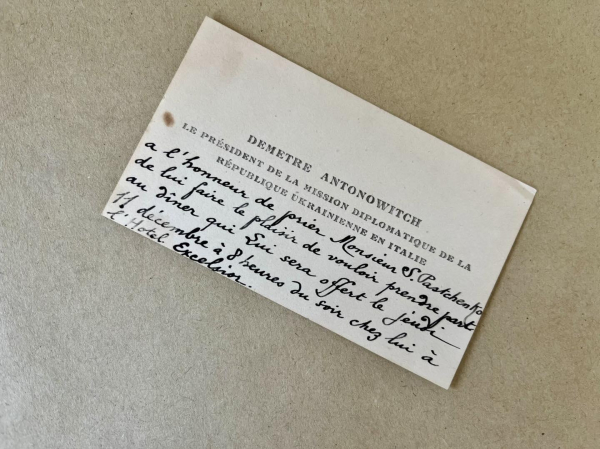 DEMETRE ANTONOWITCH
LE PRÉSIDENT DE LA MISSION DIPLOMATIQUE DE LA
RÉPUBLIQUE UKRAINIENNE EN ITALIE
a l'honneur de prier Monsieur S. Pastchenko
de lui faire le plaisir de vouloir prendre part
au dîner qui Lui sera offert le jeudi
11 décembre à 8 heures du soir chez lui à
l'Hotel Excelsior.